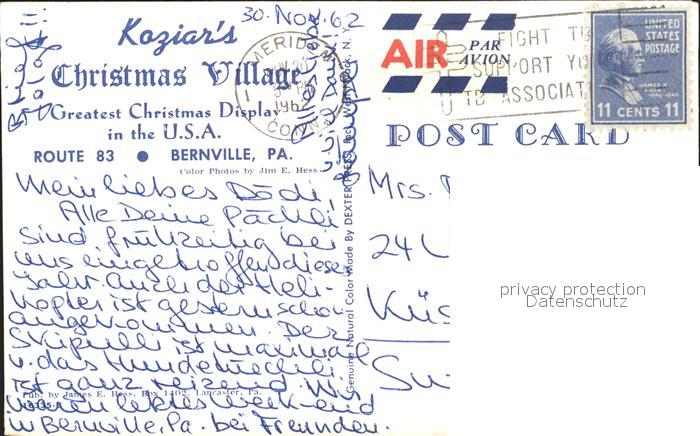 30. Nov. 62
Koziar's
Christmas Village
Greatest Christmas Display
in the U.S.A.
ROUTE 83 ● BERNVILLE, PA.
Color Photos by Jim E. Hess
MERIDEN
1962
CONN
FIGHT TB
SUPPORT YO
TB ASSOCIAT
AIR PAR AVION
UNITED
STATES
POSTAGE
11 CENTS 11
POST CARD
Mein liebes Dödi,
Alle Deine Päckli
sind frühzeitig bei
uns eingetroffen dieses
Jahr. Auch der Heli-
kopter ist gestern schon
angekommen. Der
Skipulli ist maximal
u. das Hundemäチli
ist ganz reizend. Wir
waren letztes Week-end
in Bernville, Pa. bei Freunden.
Pub. by James E. Hess, Box 1402, Lancaster, Pa.
Genuine Natural Color Made By DEXTER PRESS, Inc.
Mrs.
24
Küs
privacy protection
Datenschutz